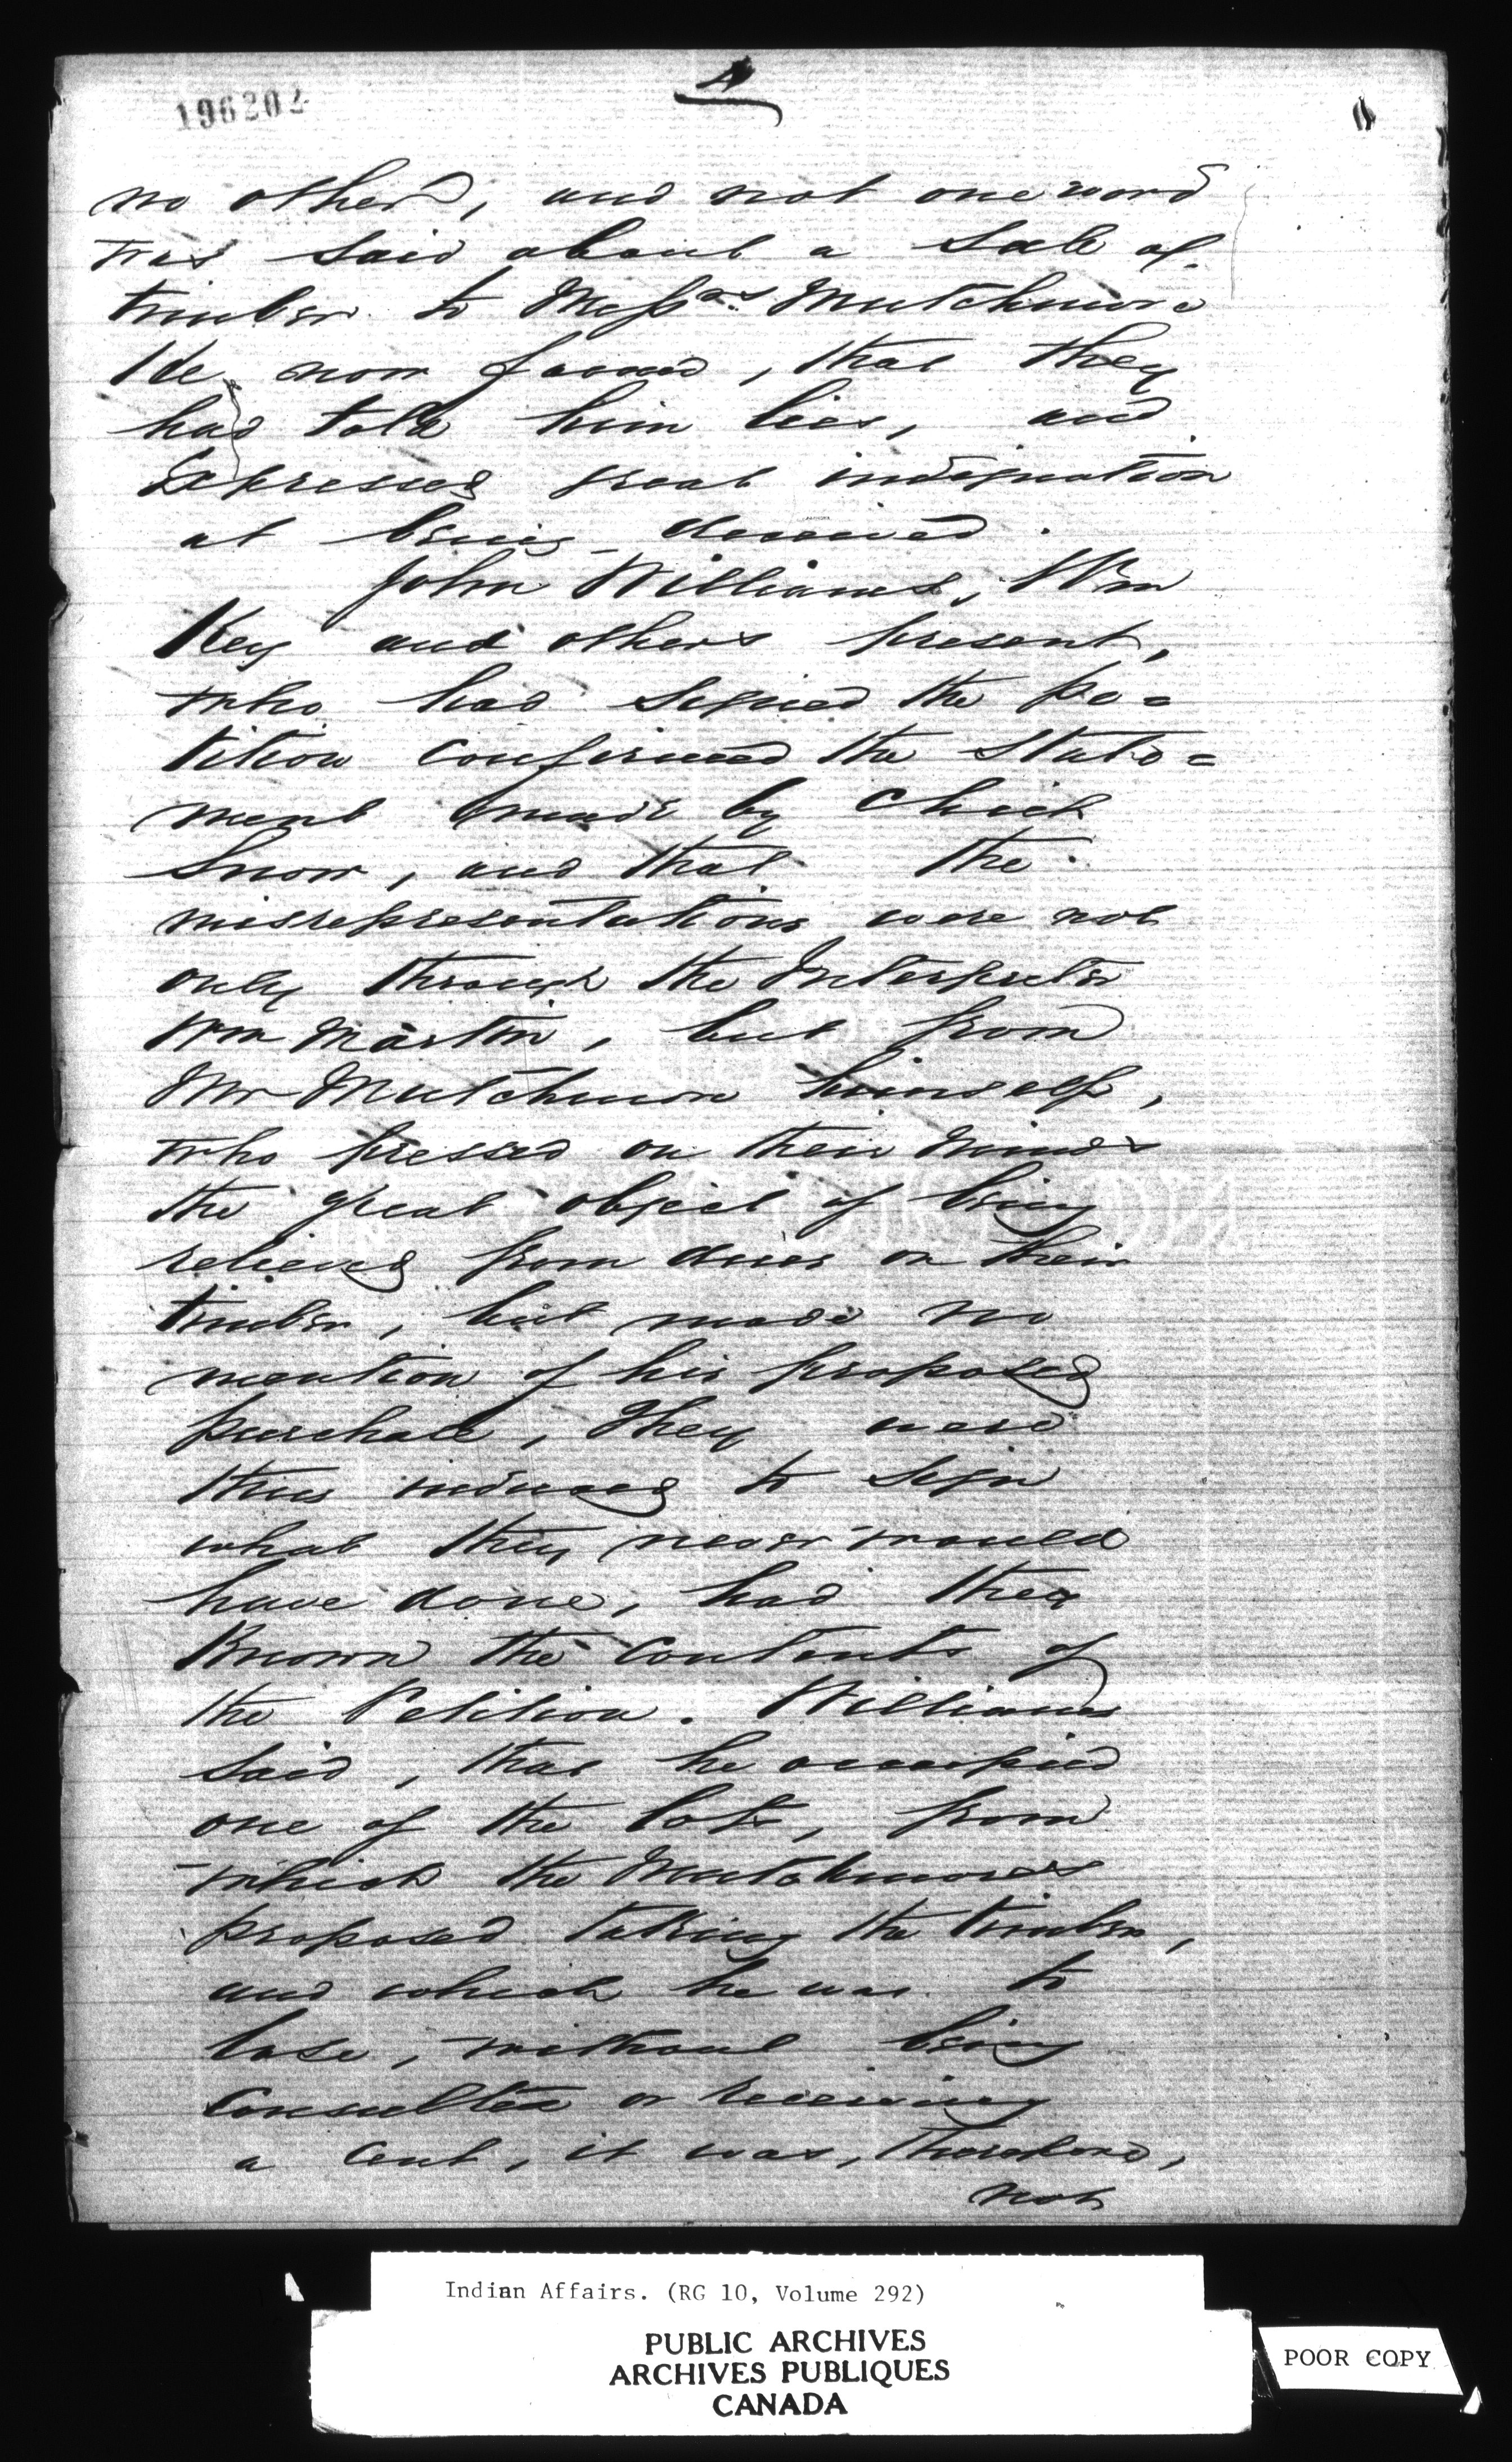 4
196202
no other, and not one word
was said about a Sale of
timber to Messrs. Mutchmore
He now found, that they
had told him lies, and
Expressed great indignation
at being deceived.
John Williams, Wm
Key and others present,
who had signed the Pe=
tition confirmed the State=
ment made by Chief
Snow, and that the
misrepresentations were not
only through the Interpreter
Wm Martin, but from
Mr Mutchmore himself,
who pressed on their minds
the great object of being
relieved from dues on their
timber, but made no
mention of his proposed
purchase, They were
thus induced to sign
what they never would
have done, had they
Known the Contents of
the Petition. Williams
said, that he occupied
one of the lots, from
which the Mutchmores
proposed taking the timber,
and which he was to
lose, without being
Consulted or receiving
a Cent, it was, therefore,
not
Indian Affairs. (RG 10, Volume 292)
PUBLIC ARCHIVES
ARCHIVES PUBLIQUES
CANADA
POOR COPY